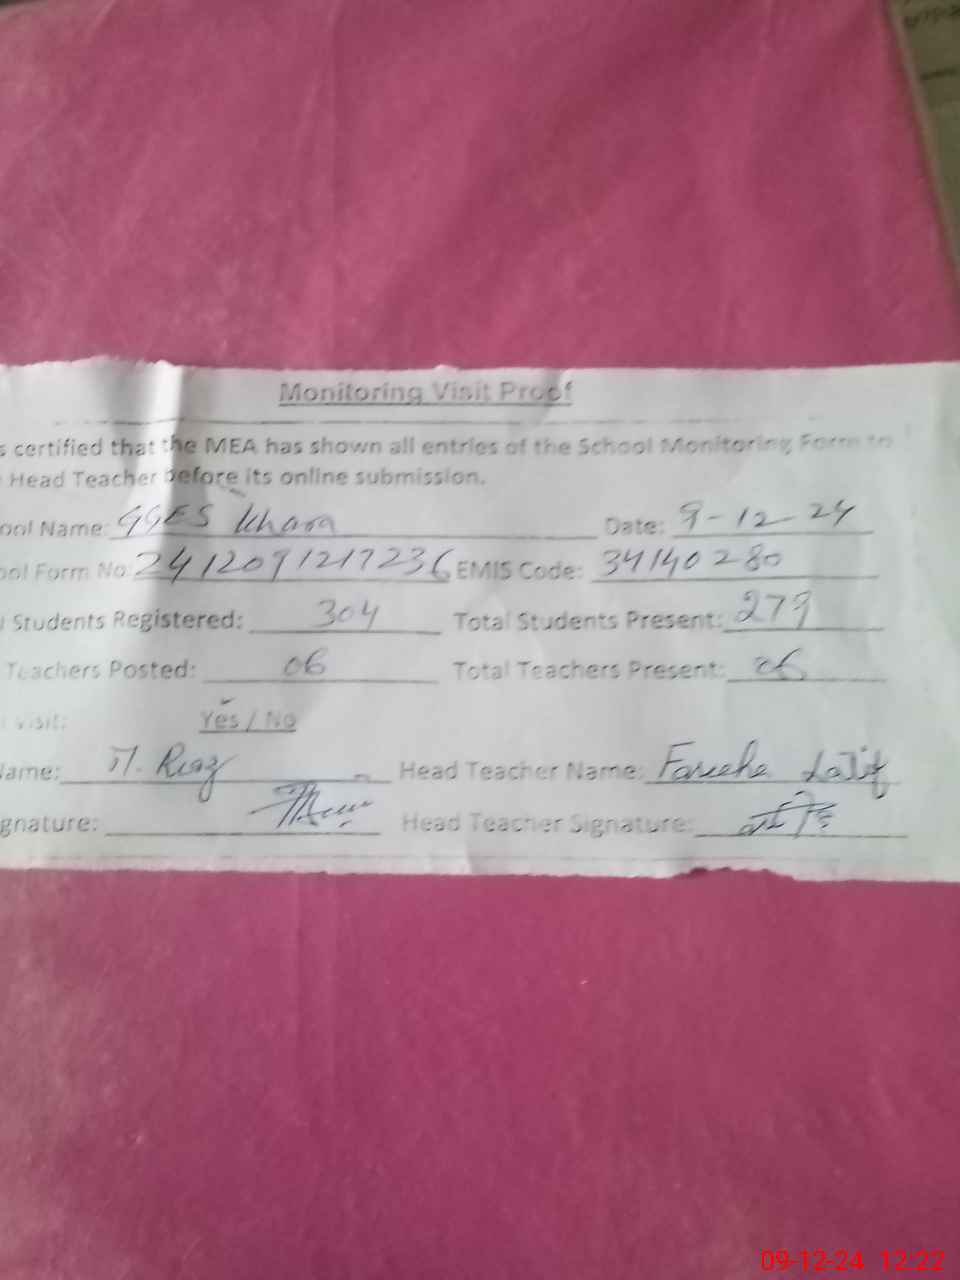 Monitoring Visit Proof
s certified that the MEA has shown all entries of the School Monitoring Form to
Head Teacher before its online submission.
ool Name: GGES Khara Date: 9-12-24
ool Form No: 2412091217236 EMIS Code: 34140280
Students Registered: 304 Total Students Present: 279
Teachers Posted: 06 Total Teachers Present: 06
visit: Yes / No
Name: M. Riaz Head Teacher Name: Fareeha Latif
gnature: Head Teacher Signature:
09-12-24 12:22